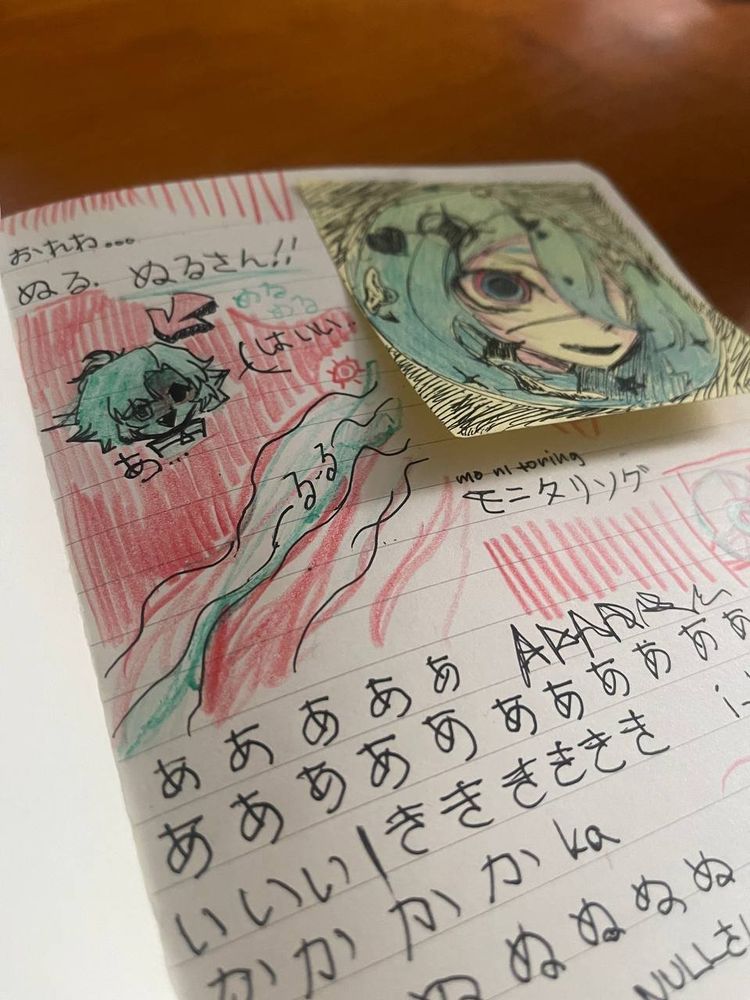 おれね...
ぬる. ぬるさん!!
ぬる
ぬる
はいい。
あ...
るる
monitoring
モニタリング
あああああ
ああああああああああ
いいい|ききききき
かかかか ka
ぬぬぬぬぬ
NULLさ